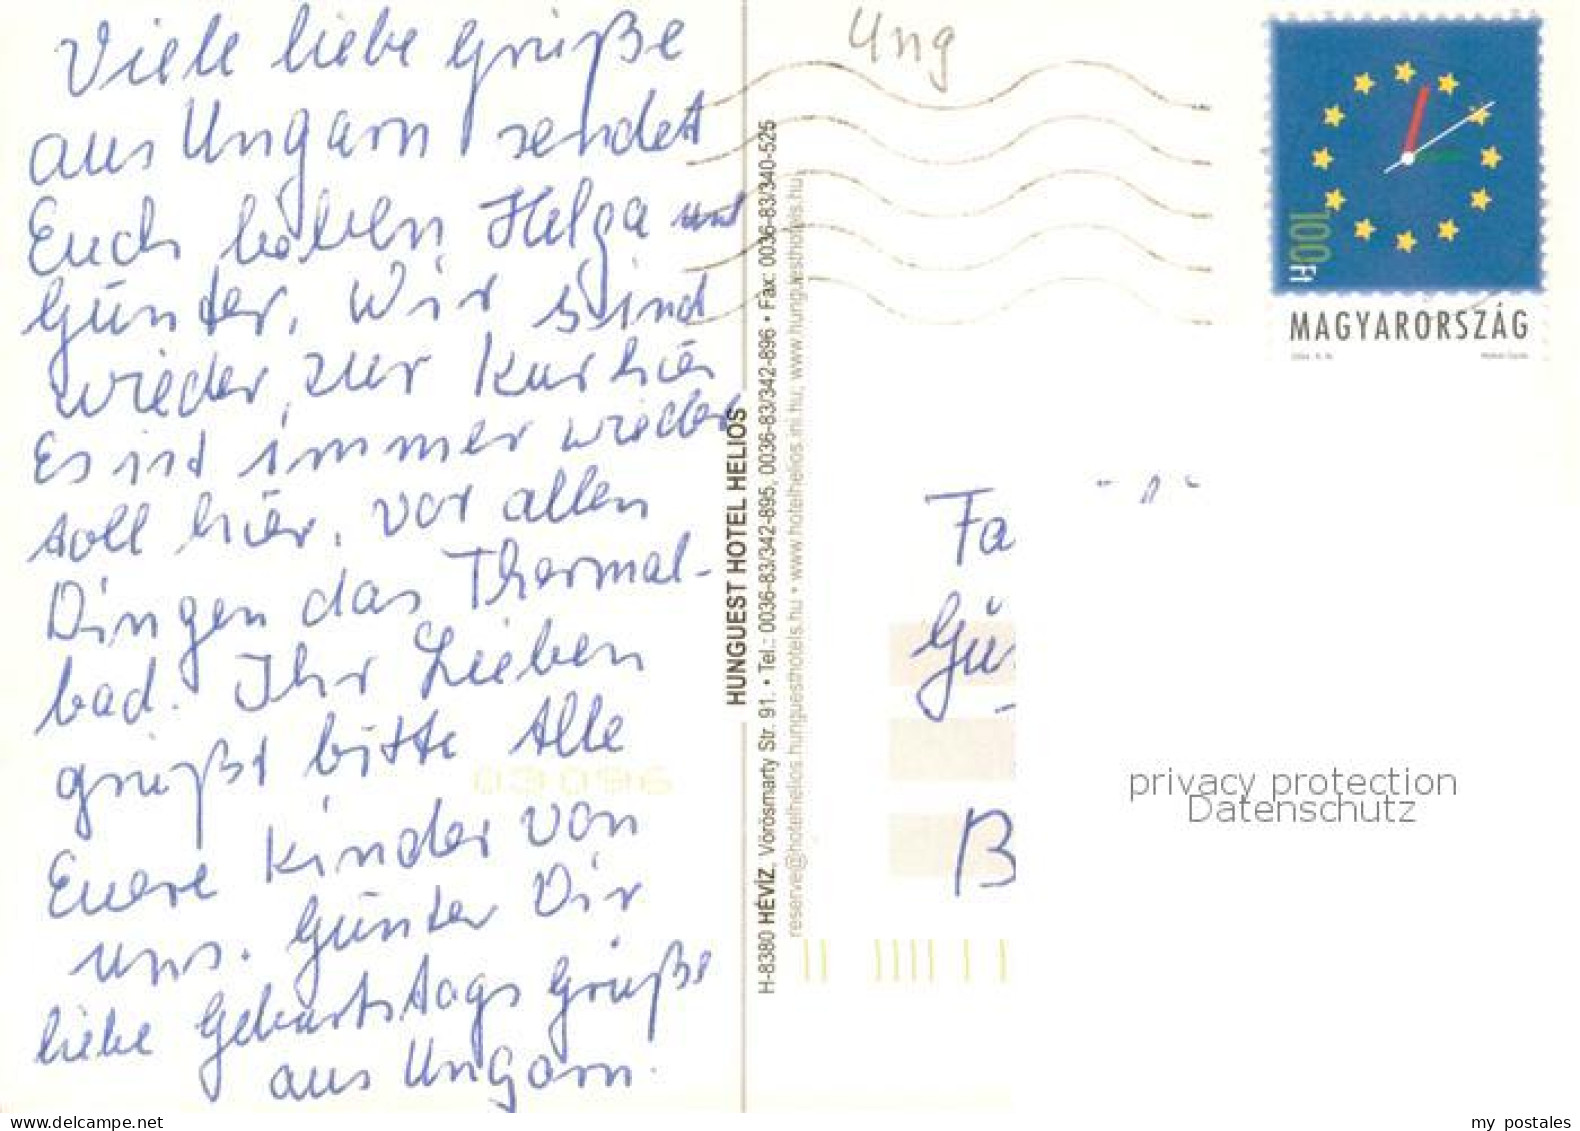 Viele liebe Grüße
aus Ungarn sendet
Euch lieben Helga und
Günter, Wir sind
wieder, zur Kur hier
Es ist immer wieder
toll hier, vor allen
Dingen das Thermal-
bad. Ihr Lieben
grüßt bitte Alle
Euere Kinder von
uns. Günter Dir
liebe Geburtstags Grüße
aus Ungarn.
03096
HUNGUEST HOTEL HELIOS
H-8380 HÉVÍZ, Vörösmarty Str. 91. • Tel.: 0036-83/342-895, 0036-83/342-896 • Fax: 0036-83/340-525
reserve@hotelhelios.hunguesthotels.hu • www.hotelhelios.ini.hu, www.hunguesthotels.hu
Ung
100Ft
MAGYARORSZÁG
Fa
Gü
B
privacy protection
Datenschutz
my postales